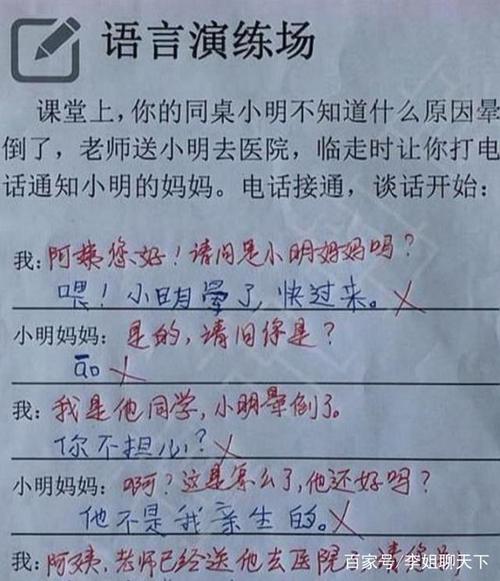 语言演练场
课堂上，你的同桌小明不知道什么原因晕
倒了，老师送小明去医院，临走时让你打电
话通知小明的妈妈。电话接通，谈话开始：
我：阿姨您好！请问是小明妈妈吗？
喂！小明晕了，快过来。
小明妈妈：是的，请问你是？
āo
我：我是他同学，小明晕倒了。
你不担心？
小明妈妈：啊？这是怎么了，他还好吗？
他不是我亲生的。
我：阿姨，老师已经送他去医院了
百家号/李姐聊天下